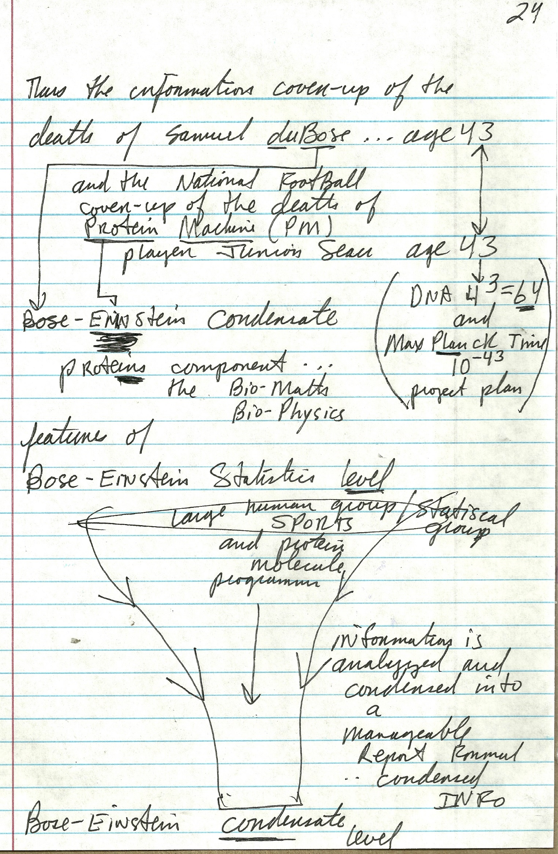 24
Thus the information cover-up of the
deaths of Samuel duBose ... age 43
and the National FootBall
cover-up of the deaths of
Protein Machine (PM)
player Junior Seau age 43
DNA 4^3=64
and
Max Planck Time
10^-43
project plan
Bose-EINStein Condensate
proteins component ...
the Bio-Maths
Bio-Physics
features of
Bose-EINstein Statistics level
large human group / Statiscal
SPORTS group
and protein
molecule
programmer
information is
analyzed and
condensed into
a
manageable
Report Format
.. condensed
INFO
Bose-Einstein condensate
level